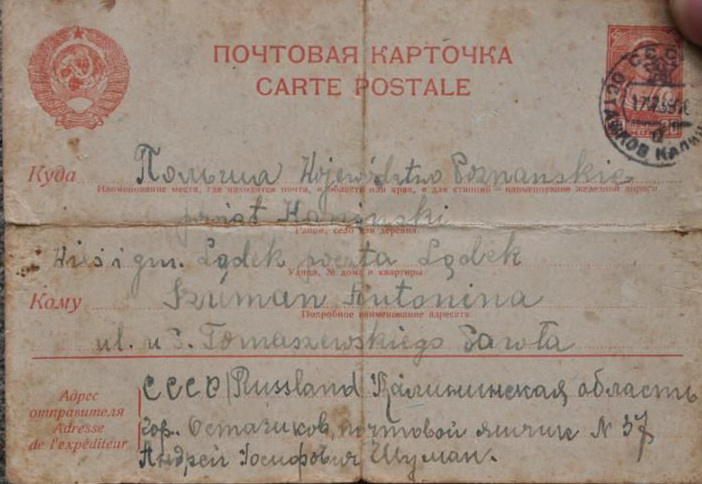 ПОЧТОВАЯ КАРТОЧКА
CARTE POSTALE
СССР
ОСТАШКОВ КАЛИН
Куда Польша Województwo Poznanskie
Наименование места, где находится почта, и области или края, а для станций – наименование железной дороги
powiat Koninski
Район, село или деревня
Wieś i gm. Lądek poczta Lądek
Улица, № дома и квартиры
Кому Szuman Antonina
Подробное наименование адресата
ul. u P. Tomaszewskiego Pawła
Адрес отправителя
Adresse de l'expéditeur
СССР/Russland Калининская область
гор. Осташков, почтовой ящик N 37
Андрей Иосифович Шуман.